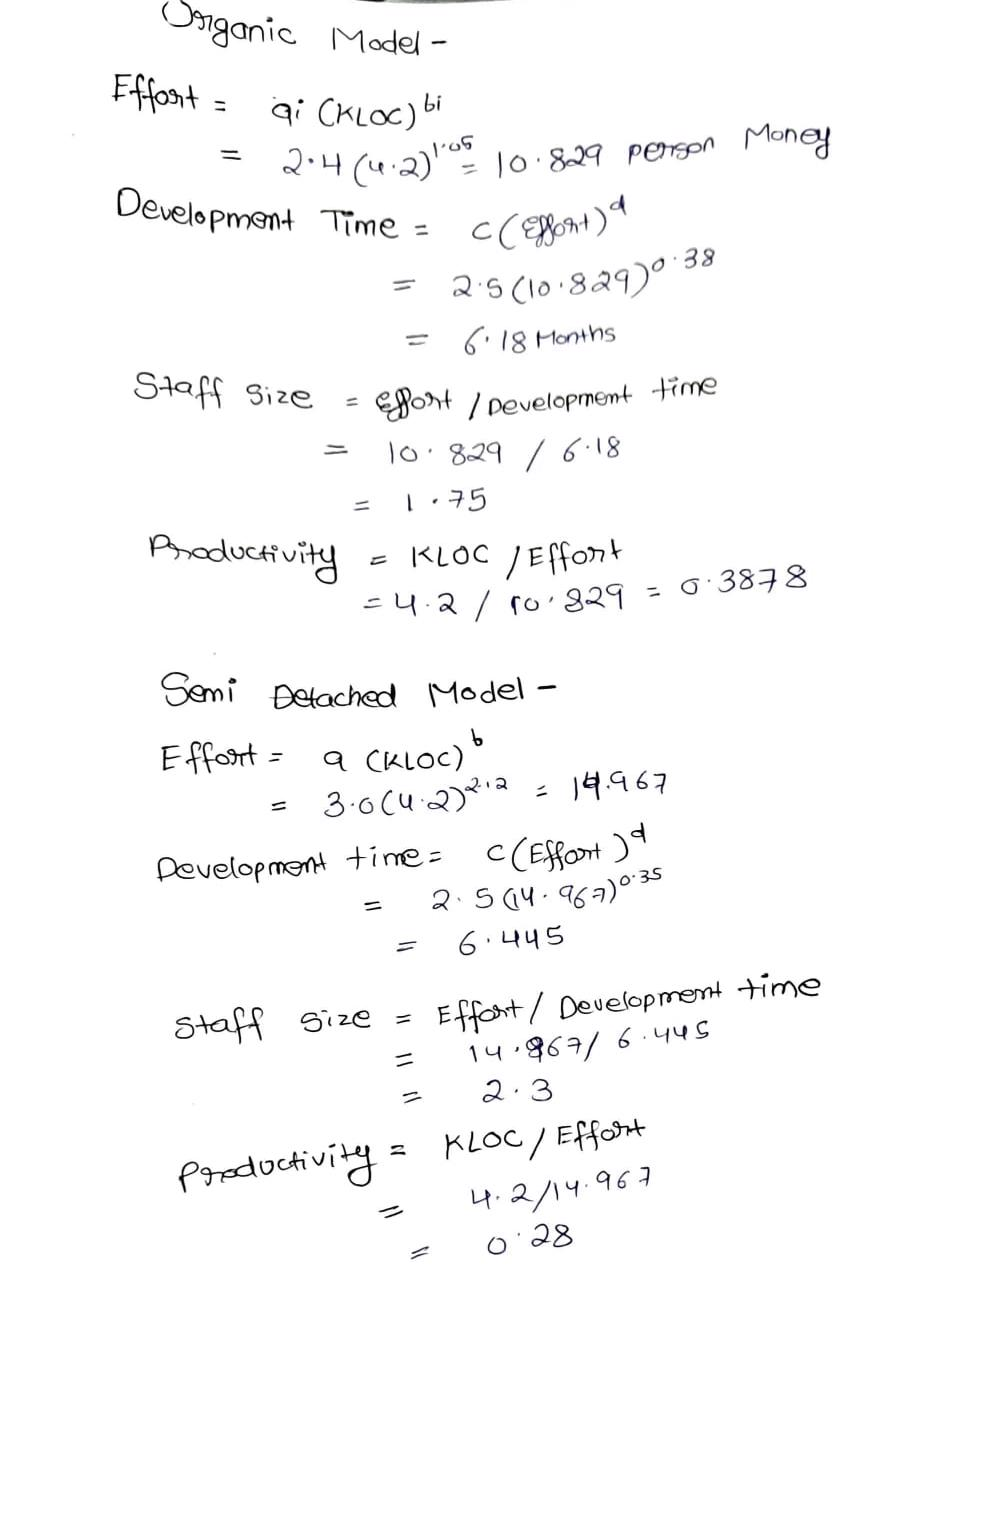 Organic Model -
Effort = ai (KLOC)^bi
= 2.4 (4.2)^1.05 = 10.829 person Money
Development Time = c (Effort)^d
= 2.5 (10.829)^0.38
= 6.18 Months
Staff Size = Effort / Development time
= 10.829 / 6.18
= 1.75
Productivity = KLOC / Effort
= 4.2 / 10.829 = 0.3878
Semi Detached Model -
Effort = a (KLOC)^b
= 3.0 (4.2)^2.12 = 14.967
Development time = c (Effort)^d
= 2.5 (14.967)^0.35
= 6.445
Staff Size = Effort / Development time
= 14.967 / 6.445
= 2.3
Productivity = KLOC / Effort
= 4.2/14.967
= 0.28